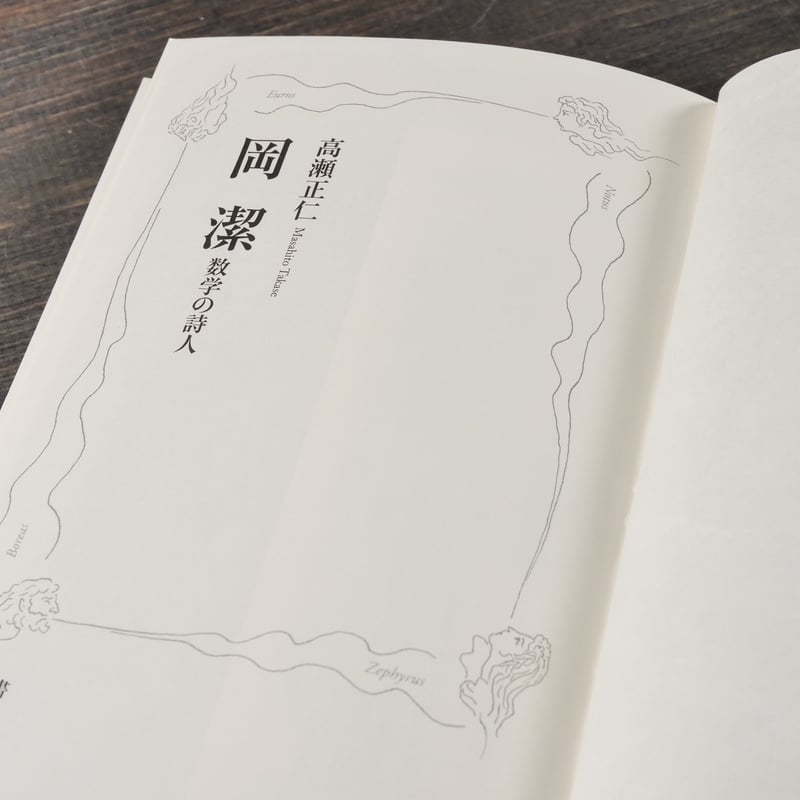 高瀬正仁 Masahito Takase
岡 潔
数学の詩人
Eurus
Notos
Zephyrus
Boreas
書